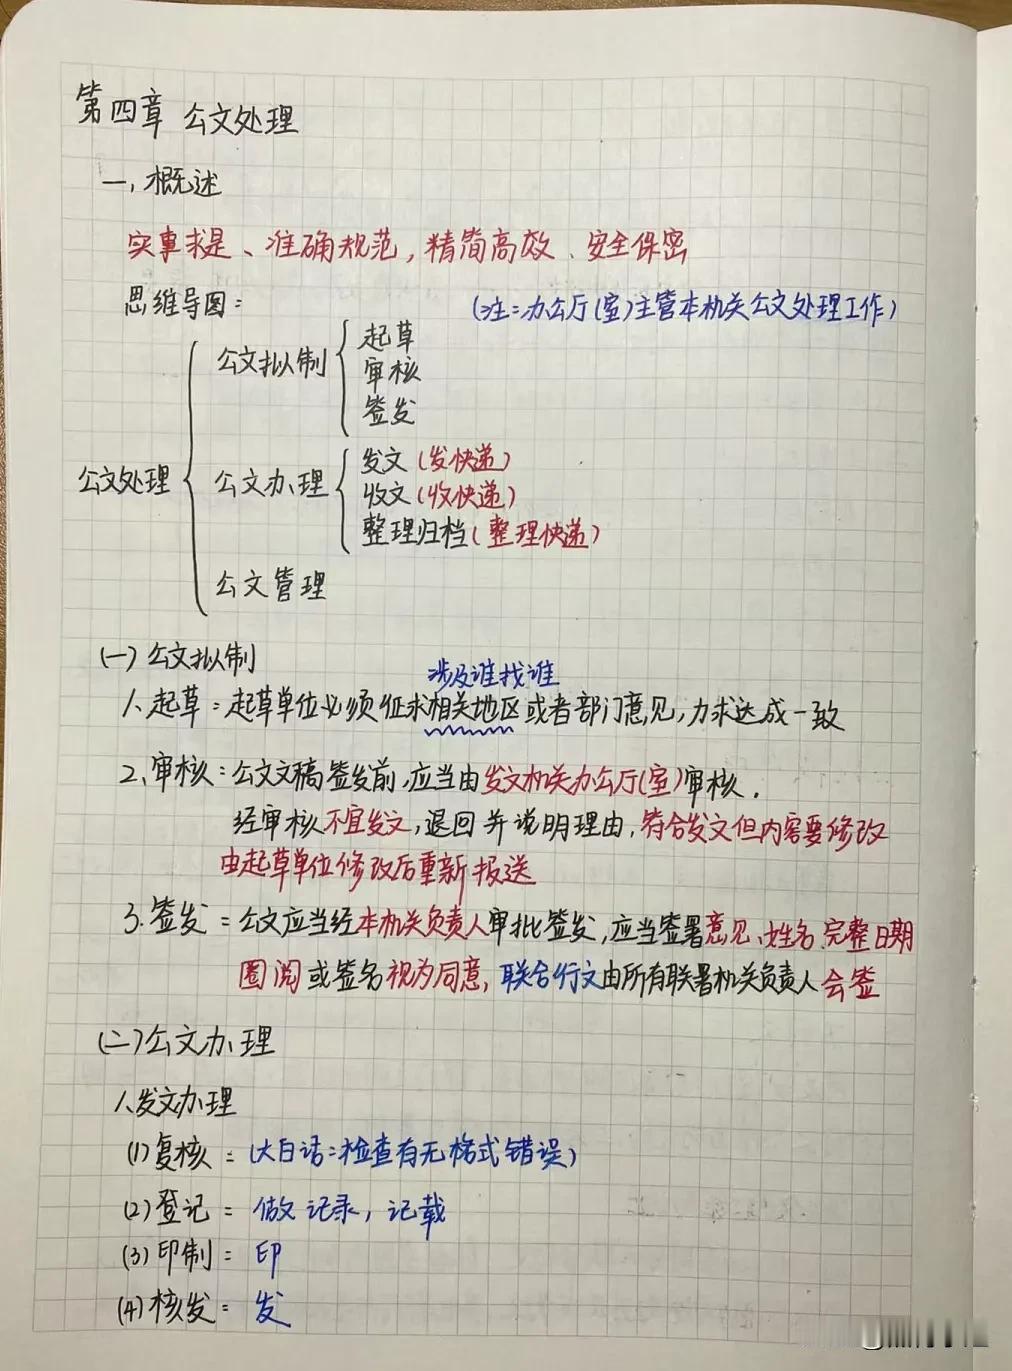 第四章 公文处理
一、概述
实事求是、准确规范，精简高效、安全保密
思维导图：
(注：办公厅(室)主管本机关公文处理工作)
公文处理
公文拟制
起草
审核
签发
公文办理
发文(发快递)
收文(收快递)
整理归档(整理快递)
公文管理
(一)公文拟制
涉及谁找谁
1、起草：起草单位必须征求相关地区或者部门意见，力求达成一致
2、审核：公文文稿签发前，应当由发文机关办公厅(室)审核．
经审核不宜发文，退回并说明理由，符合发文但内容要修改
由起草单位修改后重新报送
3.签发：公文应当经本机关负责人审批签发，应当签署意见、姓名、完整日期
圈阅或签名视为同意，联合行文由所有联署机关负责人会签
(二)公文办理
1、发文办理
(1)复核：(大白话：检查有无格式错误)
(2)登记：做记录，记载
(3)印制：印
(4)核发：发